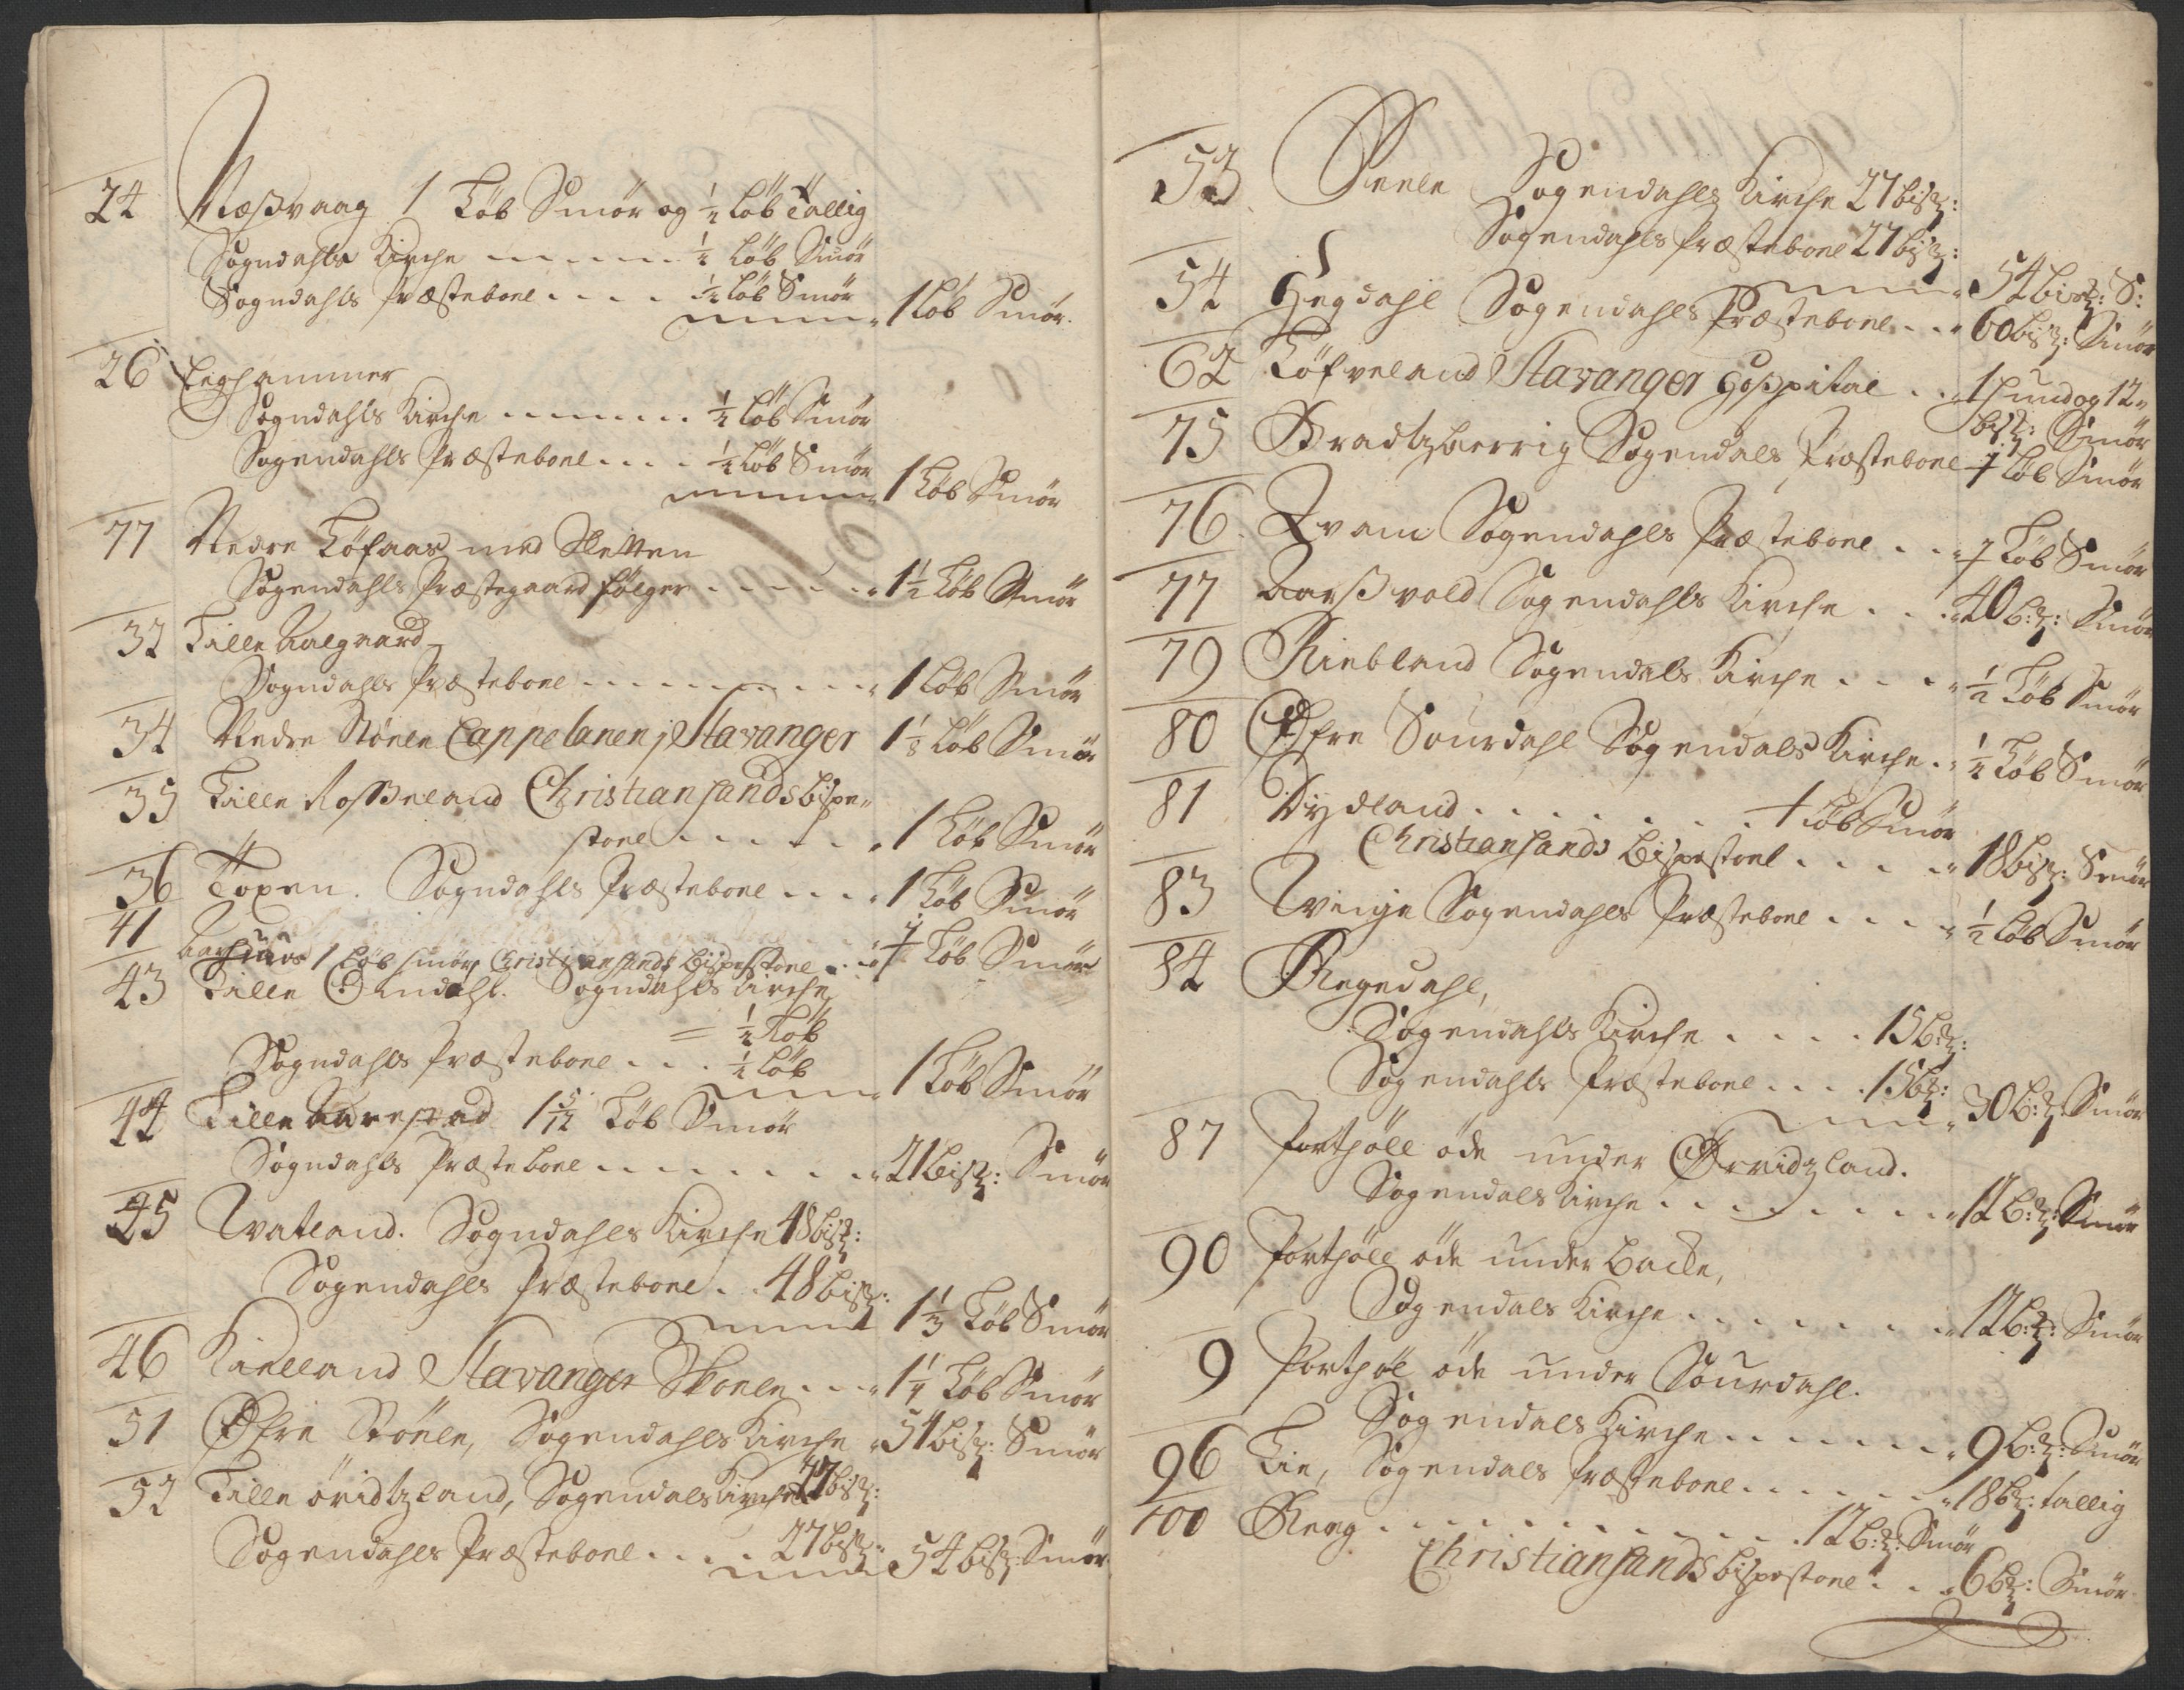 24 Næsvaag 1 Løb Smør og ½ løb Tallig
Sogndahls Kirche ½ Løb Smör
Sogndahls Præstebone ½ løb Smör
1 Løb Smör.
26 Eighammer
Sogndahls Kirche ½ Løb Smör
Sogendahls Præstebone ½ løb Smör
1 Løb Smör
77 Nedre Løfaas med Sletten
Sogendahls Præstegaard følger 1½ Løb Smör
32 Lille Aalgaard
Sogndahls Præstebone 1 Løb Smör
34 Nedre Stönle Cappelanen j Stavanger 1⅛ Løb Smör
35 Lille Rosseland Christiansands bispe„
stoel 1 Løb Smör
36 Toxen. Sogndahls Præstebone 1 Løb Smör
41 1 Løb smör Christiansands Bispestoel Løb Smör
43 Lille Sogndahls Kirche
= ½ Løb
Sogndahls Præstebone ½ Løb
1 Løb Smör
44 Lille Aarestad 1 5/12 Løb Smör
Sogndahls Præstebone 21 bisz: Smör
45 Watland. Sogndahls Kirche 48 bisz:
Sogendahls Præstebone 48 bisz:
1⅓ Løb Smör
46 Kielland Stavanger Skoele 1¼ Løb Smör
51 Øfre Stönle, Sogendahls Kirche 54 bisz: Smör
52 Lille öridtzland, Sogendals Kirche 27 bisz:
Sogendahls Præstebone 27 bisz:
54 bisz: Smör
53 Sogendahls Kirche 27 bisz:
Sogendahls Præstebone 27 bisz:
54 bisz: S:
54 Hegdahl Sogendahls Præstebone 60 bisz: Smör
62 Løfveland Stavanger Hospital 1 hud og 12„
bisz: Smör
75 Bradtzberrig Sogendals Præstebone Løb Smör
76 Qvam Sogendahls Præstebone Løb Smör
77 Aarsvold Sogendahls Kirche 40 b:z: Smör
79 Riebland Sogendals Kirche ½ Løb Smör
80 Øfre Sourdahl Sogendals Kirche ½ Løb Smör
81 Dydland Løb Smör
Christiansands Bispestoel 18 bisz: Smör
83 Sogendahls Præstebone ½ Løb Smör
84 Regedahl,
Sogendahls Kirche 15 b:z:
Sogendahls Præstebone 15 bz:
30 b:z: Smör
87 Porthöll öde under Ørridzland.
Sogendals Kirche 12 b:z: Smör
90 Porthöll öde under Backe,
Sogendals Kirche 12 b:z: Smör
9 Porthöl öde under Sourdahl.
Sogendals Kirche 9 b:z: Smör
96 Lie, Sogendals Præstebone 18 bz: tallig
100 12 b:z: Smör
Christiansands bispestoel 6 bz: Smör